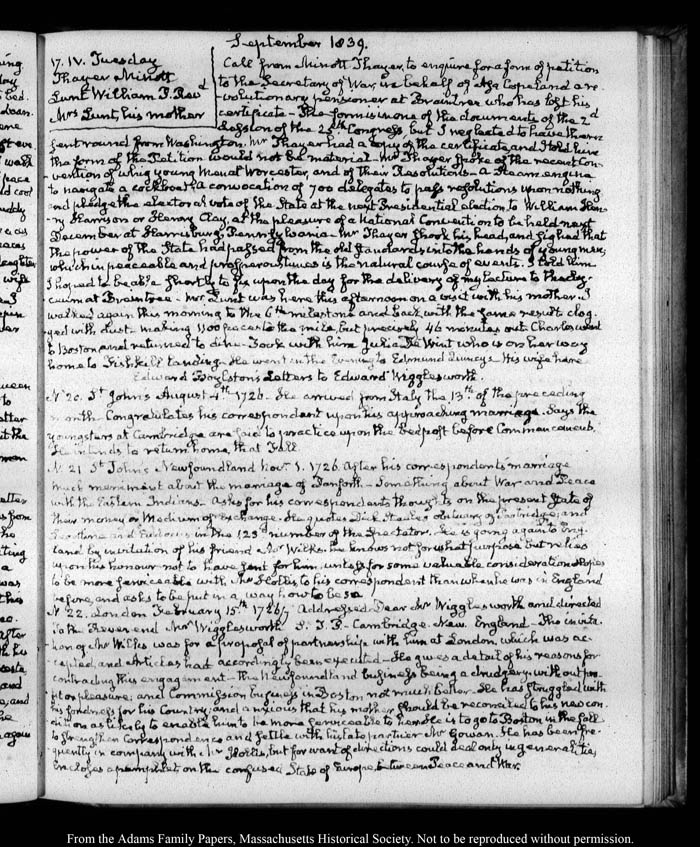 September 1839.
17. IV. Tuesday
Thayer Minott
Lunt William P. Revd
Mrs Lunt, his mother
Call from Minott Thayer, to enquire for a form of petition
to the Secretary of War, in behalf of Asa Copeland a re-
-volutionary pensioner at Braintree who has lost his
certificate - The form is in one of the documents of the 2d
Session of the 25th Congress, but I neglected to have them
sent round from Washington. Mr Thayer had a copy of the certificate, and I told him
the form of the Petition would not be material - Mr Thayer spoke of the recent Con-
-vention of whig young men at Worcester, and of their Resolutions - A steam engine
to navigate a cockboat. A convocation of 700 delegates to pass resolutions upon nothing
and pledge the electoral vote of the State at the next Presidential election, to William Hen-
-ry Harrison or Henry Clay, at the pleasure of a National Convention to be held next
December at Harrisburg, Pennsylvania - Mr Thayer shook his head, and sighed that
the power of the State had passed from the old standards into the hands of young men,
which in peaceable and prosperous times is the natural course of events. I told him
I hoped to be able shortly to fix upon the day for the delivery of my lecture to the Ly-
ceum at Braintree - Mr. Lunt was here this afternoon on a visit with his mother. I
walked again this morning to the 6th milestone and back with the same result clog-
ged with dust - making 1100 paces to the mile, but precisely 46 minutes out. Charles went
to Boston and returned to dine - Took with him Julia De Wint who is on her way
home to Fishkill landing - He went in the Evening to Edmund Quincy's - His wife here
Edward Boylston's Letters to Edward Wigglesworth.
N. 20. St John's August 4th 1726. He arrived from Italy the 13th of the preceding
month - Congratulates his correspondent upon his approaching marriage. Says the
youngsters at Cambridge are said to practice upon the bedpost before Commencement.
He intends to return home, that Fall.
N. 21 St John's Newfoundland Novr 1. 1726. After his correspondent's marriage
much merriment about the marriage of Danforth - Something about War and Peace
with the Eastern Indians - Asks for his correspondent's thoughts on the present State of
their money or Medium of exchange. He quotes Dick Steele's and
in the 123d number of the Spectator. He is going again to Eng-
land by invitation of his friend Mr Wilks. He knows not for what purpose but relies
upon his honour not to have sent for him, unless for some valuable consideration. Hopes
to be more serviceable with Mr Hollis, to his correspondent than when he was in England
before, and asks to be put in a way how to be so
N. 22. London February 15th 1726/7 Addressed Dear Mr Wigglesworth and directed
To the Reverend Mr Wigglesworth S. T. P. Cambridge. New England - The invita-
tion of Mr Wilks was for a proposal of partnership with him at London, which was ac-
cepted, and Articles had accordingly been executed - He gives a detail of his reasons for
contracting this engagement - the Newfoundland business being a drudgery without pro-
fit or pleasure; and Commission business in Boston not much better. He has struggled with
his fondness for his Country, and anxious that his mother should be reconciled to his new con-
dition as likely to enable him to be more serviceable to her. He is to go to Boston in the fall
to strengthen correspondence and settle with his late partner Mr Gowan. He has been fre-
quently in company with Mr Hollis, but for want of directions could deal only in generalities,
Encloses a pamphlet on the confused State of Europe, between Peace and War.
From the Adams Family Papers, Massachusetts Historical Society. Not to be reproduced without permission.